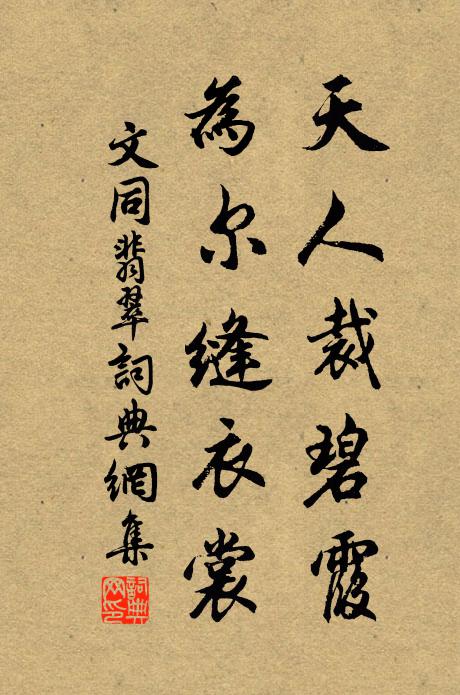 天人裁碧霞
為尔縫衣裳
文同翡翠詞典網集
詞典網印